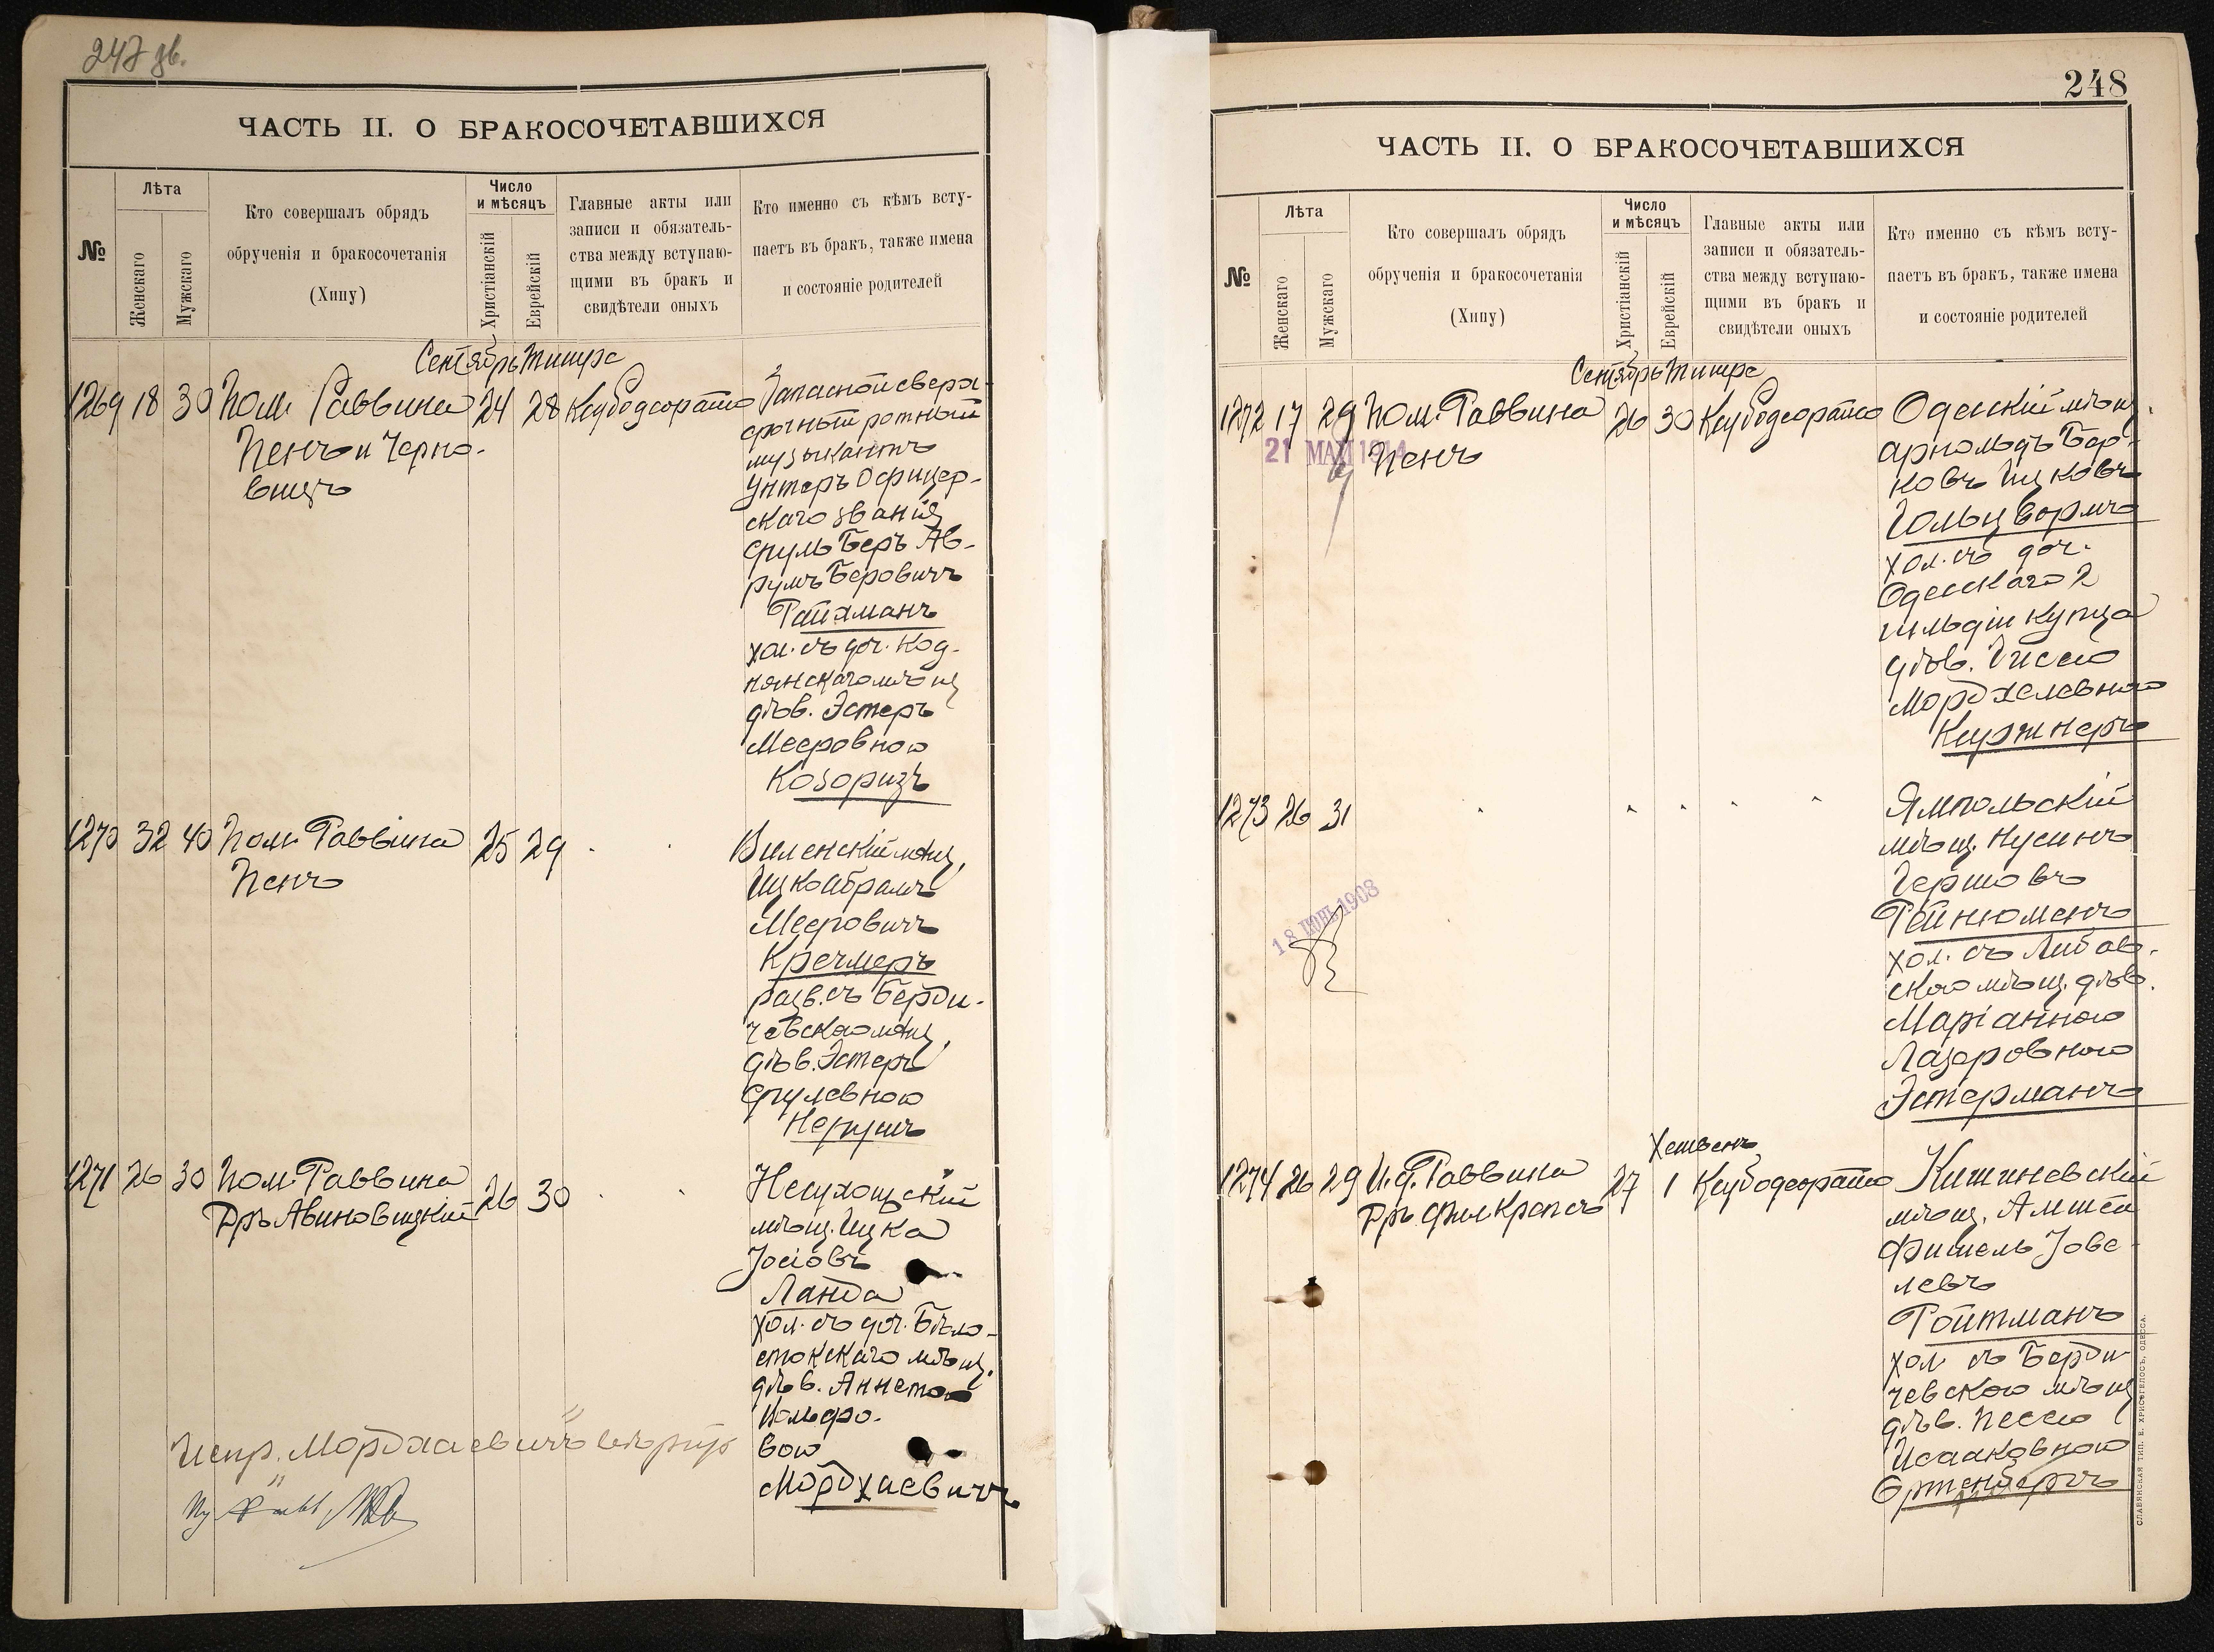 247 зв.
ЧАСТЬ II. О БРАКОСОЧЕТАВШИХСЯ
№
Лѣта
Женскаго
Мужскаго
Кто совершалъ обрядъ
обрученія и бракосочетанія
(Хипу)
Число
и мѣсяцъ
Христіанскій
Еврейскій
Главные акты или
записи и обязатель-
ства между вступаю-
щими въ бракъ и
свидѣтели оныхъ
Кто именно съ кѣмъ всту-
паетъ въ бракъ, также имена
и состояніе родителей
Сентябрь Тишре
1269 18 30 Пом. Раввина 24 28 Кцубодеорато
Пенъ и Черно-
вицъ
Запасной сверх-
срочный ротный
музыкантъ
Унтеръ Офицер-
скаго званія
Сруль Беръ Ав-
румъ Беровичъ
Райхманъ
хол. съ доч. Код-
нянскаго мѣщ
дѣв. Эстеръ
Мееровною
Козоризъ
1270 32 40 Пом. Раввина 25 29
Пенъ
Виленскій мѣщ.
Ицко Абрамъ
Мееровичъ
Кречмеръ
разв. съ Берди-
чевскою мѣщ.
дѣв. Эстеръ
Срулевною
1271 26 30 Пом. Раввина 26 30
Дръ Авиновицкій
Несухоцскій
мѣщ. Ицка
Іосіовъ
Ланда
хол. съ доч. Бѣло-
стокскаго мѣщ.
дѣв. Аннетою
Вольфо-
вою
Мордхаевичъ
Испр. "Мордхаевичъ" вѣрно
248
ЧАСТЬ II. О БРАКОСОЧЕТАВШИХСЯ
№
Лѣта
Женскаго
Мужскаго
Кто совершалъ обрядъ
обрученія и бракосочетанія
(Хипу)
Число
и мѣсяцъ
Христіанскій
Еврейскій
Главные акты или
записи и обязатель-
ства между вступаю-
щими въ бракъ и
свидѣтели оныхъ
Кто именно съ кѣмъ всту-
паетъ въ бракъ, также имена
и состояніе родителей
Сентябрь Тишре
1272 17 29 Пом. Раввина 26 30 Кцубодеорато
21 МАЙ 1914
Пенъ
Одесскій мѣщ.
Арнольдъ Бер-
ковъ Ицковъ
Гольцвормъ
хол. съ доч.
Одесскаго 2
гильдіи купца
дѣв. Гиссею
Мордхелевною
Киржнеръ
1273 26 31
18 ІЮН. 1908
Ямпольскій
мѣщ. Нусинъ
Гершовъ
Рейнюменъ
хол. съ Либав-
скою мѣщ. дѣв.
Маріанною
Лазеровною
Эстерманъ
Хешвенъ
1274 26 29 И. д. Раввина 27 1 Кцубодеорато
Дръ
Кишиневскій
мѣщ. Амшей
Фишель Іове-
левъ
Ройтманъ
хол съ Берди-
чевскою мѣщ
дѣв. Песею
Исааковною
Ортенбергъ
СЛАВЯНСКАЯ ТИП. Е. ХРИСОГЕЛОСЪ, ОДЕССА.